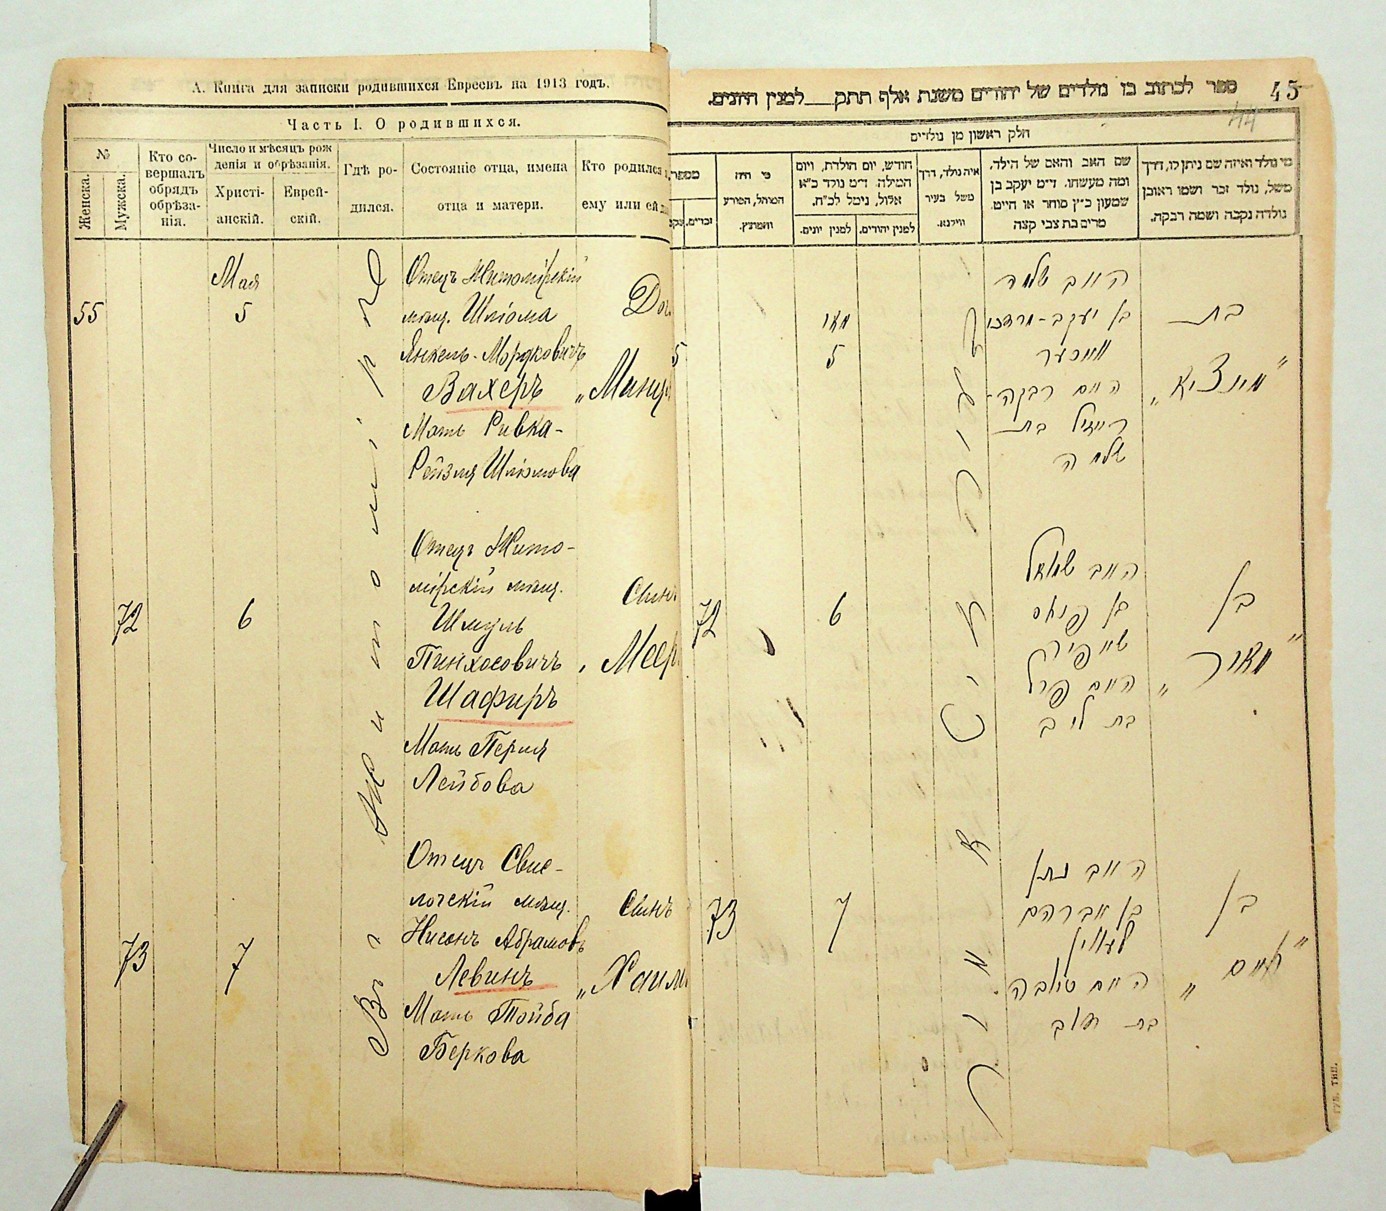 А. Книга для записки родившихся Евреевъ на 1913 годъ.
Часть I. О родившихся.
№
Женска.
Мужска.
Кто со-
вершалъ
обрядъ
обрѣза-
нія.
Число и мѣсяцъ рож
денія и обрѣзанія.
Христі-
анскій.
Еврей-
скій.
Гдѣ ро-
дился.
Состояніе отца, имена
отца и матери.
Кто родился
ему или ей
Въ г Житомірѣ
55
Мая
5
Отецъ Житомірскій
мѣщ. Шлёма
Янкель-Мордковичъ
Вахеръ
Мать Ривка-
Рейзля Шлёмова
Доч
„Минця
72
6
Отецъ Жито-
мірскій мѣщ.
Шмуль
Пинхосовичъ
Шафиръ
Мать Перля
Лейбова
Сынъ
Меер
73
7
Отецъ Свис-
лочскій мѣщ.
Нисонъ Абрамовъ
Левинъ
Мать Тойба
Беркова
Сынъ
„Хаим
ספר לכתוב בו נולדים של יהודים משנת אלף תתק__למנין היונים.
45
44
חלק ראשון מן נולדים
מי נולד ואיזה שם ניתן לו, דרך
משל, נולד זכר ושמו ראובן
נולדה נקבה ושמה רבקה.
שם האב והאם של הילד,
ומה מעשהו. ד״מ יעקב בן
שמעון כ״ץ סוחר או חייט.
מרים בת צבי קצה
איה נולד, דרך
משל בעיר
ווילנא.
חודש, יום הולדת, ויום
המילה. ד״מ נולד כ״א
אלול, נימל לכ״ח.
למנין יונים.
למנין יהודים.
מי היה
המוהל, הפורע
והמוצץ.
מספר
זכרים.
בת
„מינציא"
האב שלמה
בן יעקב-מרדכי
וואכער
האם רבקה-
רייזיל בת
שלמה
מאי
5
5
בן
„מאיר"
האב שמואל
בן פנחס
שאפיר
האם פערל
בת ליב
6
72
בן
„חיים"
האב ניסן
בן אברהם
לעווין
האם טויבה
בת דוב
7
73